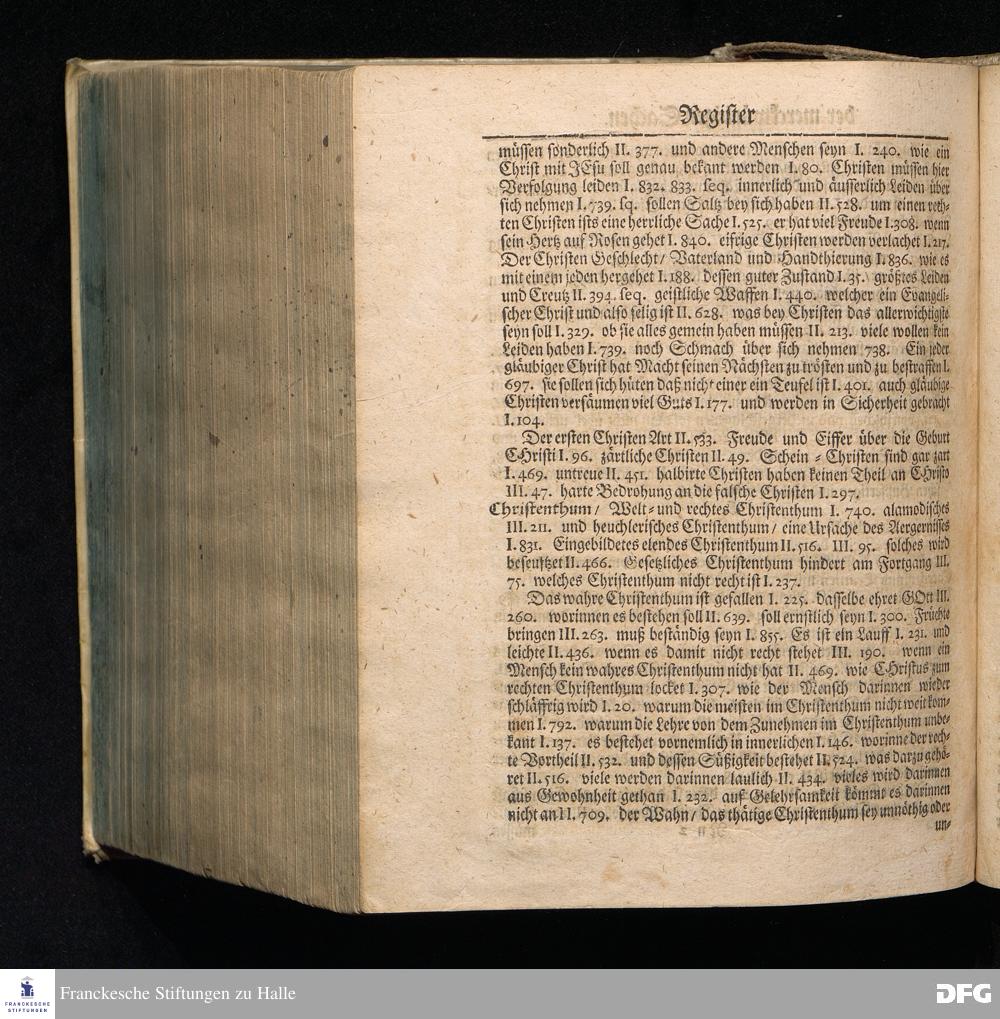 Register
müssen sonderlich II. 377. und andere Menschen seyn I. 240. wie ein
Christ mit JEsu soll genau bekant werden I. 80. Christen müssen hier
Verfolgung leiden I. 832. 833. seq. innerlich und äusserlich Leiden über
sich nehmen I. 739. sq. sollen Saltz bey sich haben II. 528. um einen rech-
ten Christen ists eine herrliche Sache I. 525. er hat viel Freude I. 308. wenn
sein Hertz auf Rosen gehet I. 840. eifrige Christen werden verlachet I. 217.
Der Christen Geschlecht/ Vaterland und Handthierung I. 836. wie es
mit einem jeden hergehet I. 188. dessen guter Zustand I. 35. größtes Leiden
und Creutz II. 394. seq. geistliche Waffen I. 440. welcher ein Evangeli-
scher Christ und also selig ist II. 628. was bey Christen das allerwichtigste
seyn soll I. 329. ob sie alles gemein haben müssen II. 213. viele wollen kein
Leiden haben I. 739. noch Schmach über sich nehmen 738. Ein jeder
gläubiger Christ hat Macht seinen Nächsten zu trösten und zu bestraffen I.
697. sie sollen sich hüten daß nicht einer ein Teufel ist I. 401. auch gläubige
Christen versäumen viel Guts I. 177. und werden in Sicherheit gebracht
I. 104.
Der ersten Christen Art II. 533. Freude und Eiffer über die Geburt
CHristi I. 96. zärtliche Christen II. 49. Schein-Christen sind gar zart
I. 469. untreue II. 451. halbirte Christen haben keinen Theil an CHristo
III. 47. harte Bedrohung an die falsche Christen I. 297.
Christenthum/ Welt- und rechtes Christenthum I. 740. alamodisches
III. 211. und heuchlerisches Christenthum/ eine Ursache des Aergernisses
I. 831. Eingebildetes elendes Christenthum II. 516. III. 95. solches wird
beseufzet II. 466. Gesetzliches Christenthum hindert am Fortgang III.
75. welches Christenthum nicht recht ist I. 237.
Das wahre Christenthum ist gefallen I. 225. dasselbe ehret GOtt III.
260. worinnen es bestehen soll II. 639. soll ernstlich seyn I. 300. Früchte
bringen III. 263. muß beständig seyn I. 855. Es ist ein Lauff I. 231. und
leichte II. 436. wenn es damit nicht recht stehet III. 190. wenn ein
Mensch kein wahres Christenthum nicht hat II. 469. wie CHristus zum
rechten Christenthum locket I. 307. wie der Mensch darinnen wieder
schläffrig wird I. 20. warum die meisten im Christenthum nicht weit kom-
men I. 792. warum die Lehre von dem Zunehmen im Christenthum unbe-
kant I. 137. es bestehet vornemlich in innerlichen I. 146. worinne der rech-
te Vortheil II. 532. und dessen Süßigkeit bestehet II. 524. was darzu gehö-
ret II. 516. viele werden darinnen laulich II. 434. vieles wird darinnen
aus Gewohnheit gethan I. 232. auf Gelehrsamkeit kömmt es darinnen
nicht an II. 709. der Wahn/ das thätige Christenthum sey unnöthig oder
un-
FRANCKESCHE
STIFTUNGEN
Franckesche Stiftungen zu Halle
DFG